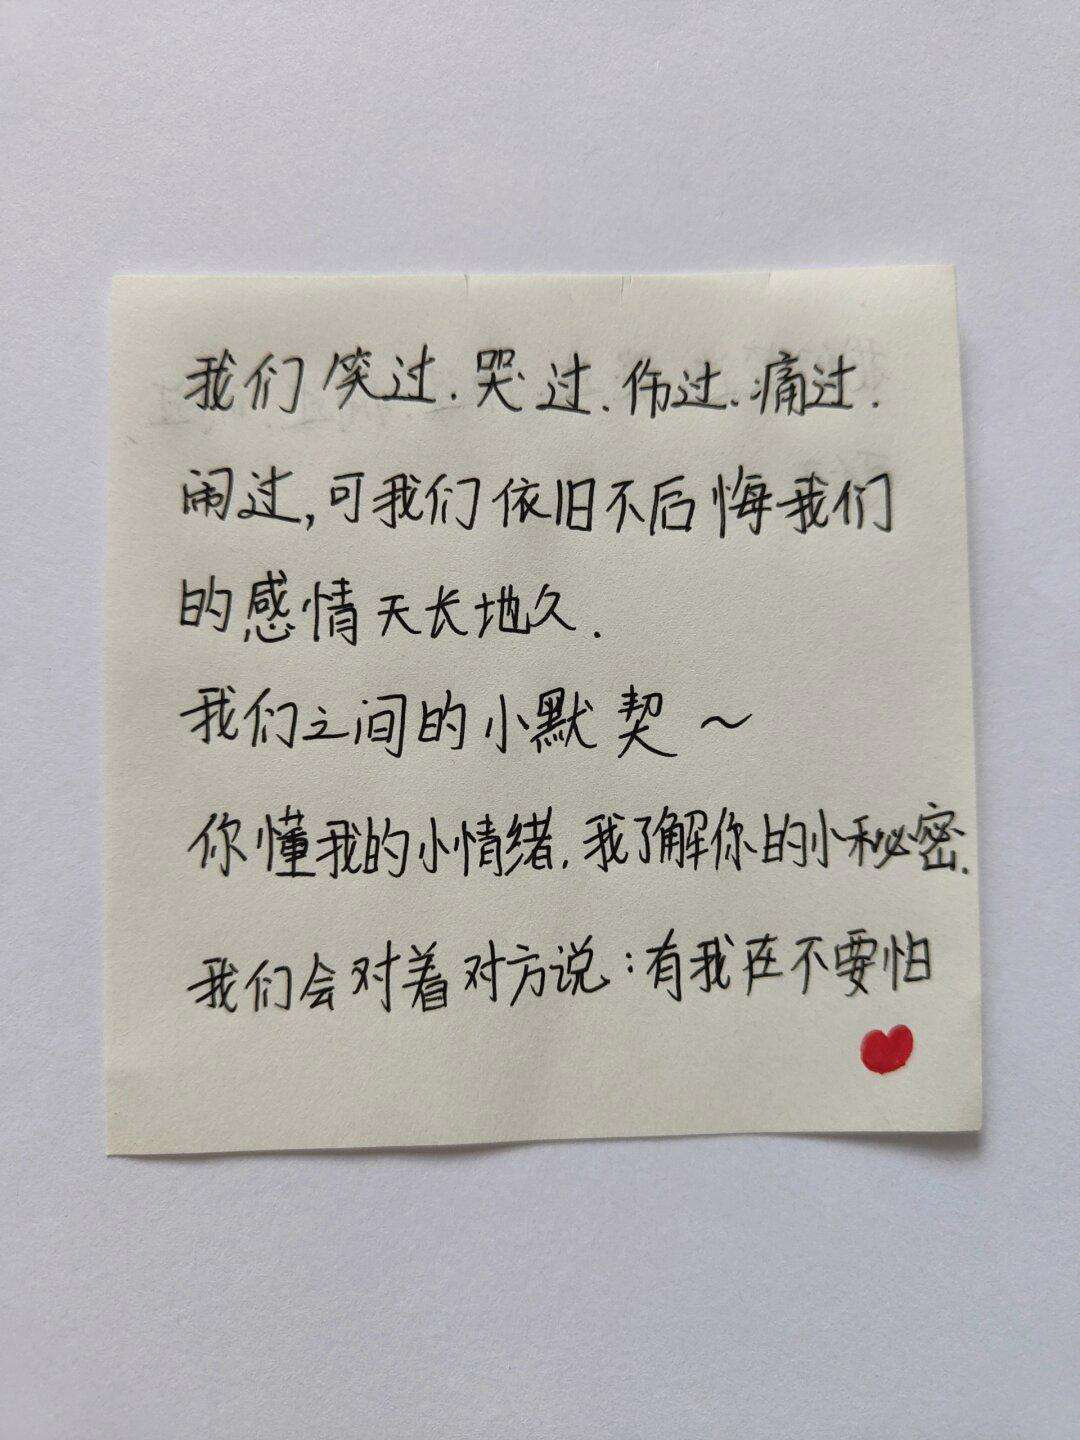 我们笑过.哭过.伤过.痛过.
闹过,可我们依旧不后悔我们
的感情天长地久.
我们之间的小默契~
你懂我的小情绪.我了解你的小秘密.
我们会对着对方说:有我在不要怕